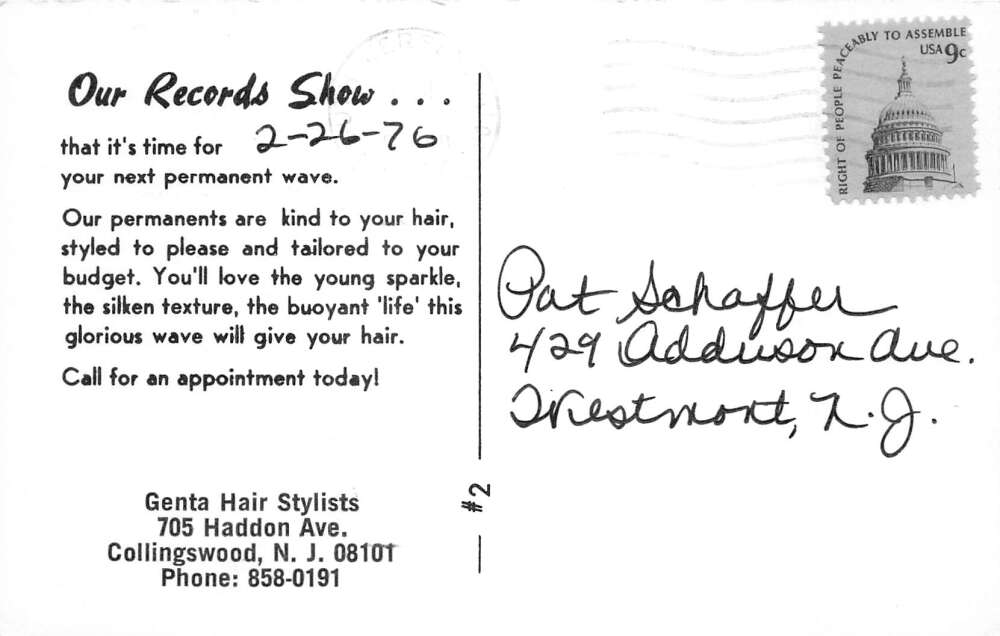 Our Records Show . . .
that it's time for 2-26-76
your next permanent wave.
Our permanents are kind to your hair,
styled to please and tailored to your
budget. You'll love the young sparkle,
the silken texture, the buoyant 'life' this
glorious wave will give your hair.
Call for an appointment today!
Genta Hair Stylists
705 Haddon Ave.
Collingswood, N. J. 08101
Phone: 858-0191
#2
RIGHT OF PEOPLE PEACEABLY TO ASSEMBLE
USA 9c
Pat Schaffer
429 Addison Ave.
Westmont, N.J.